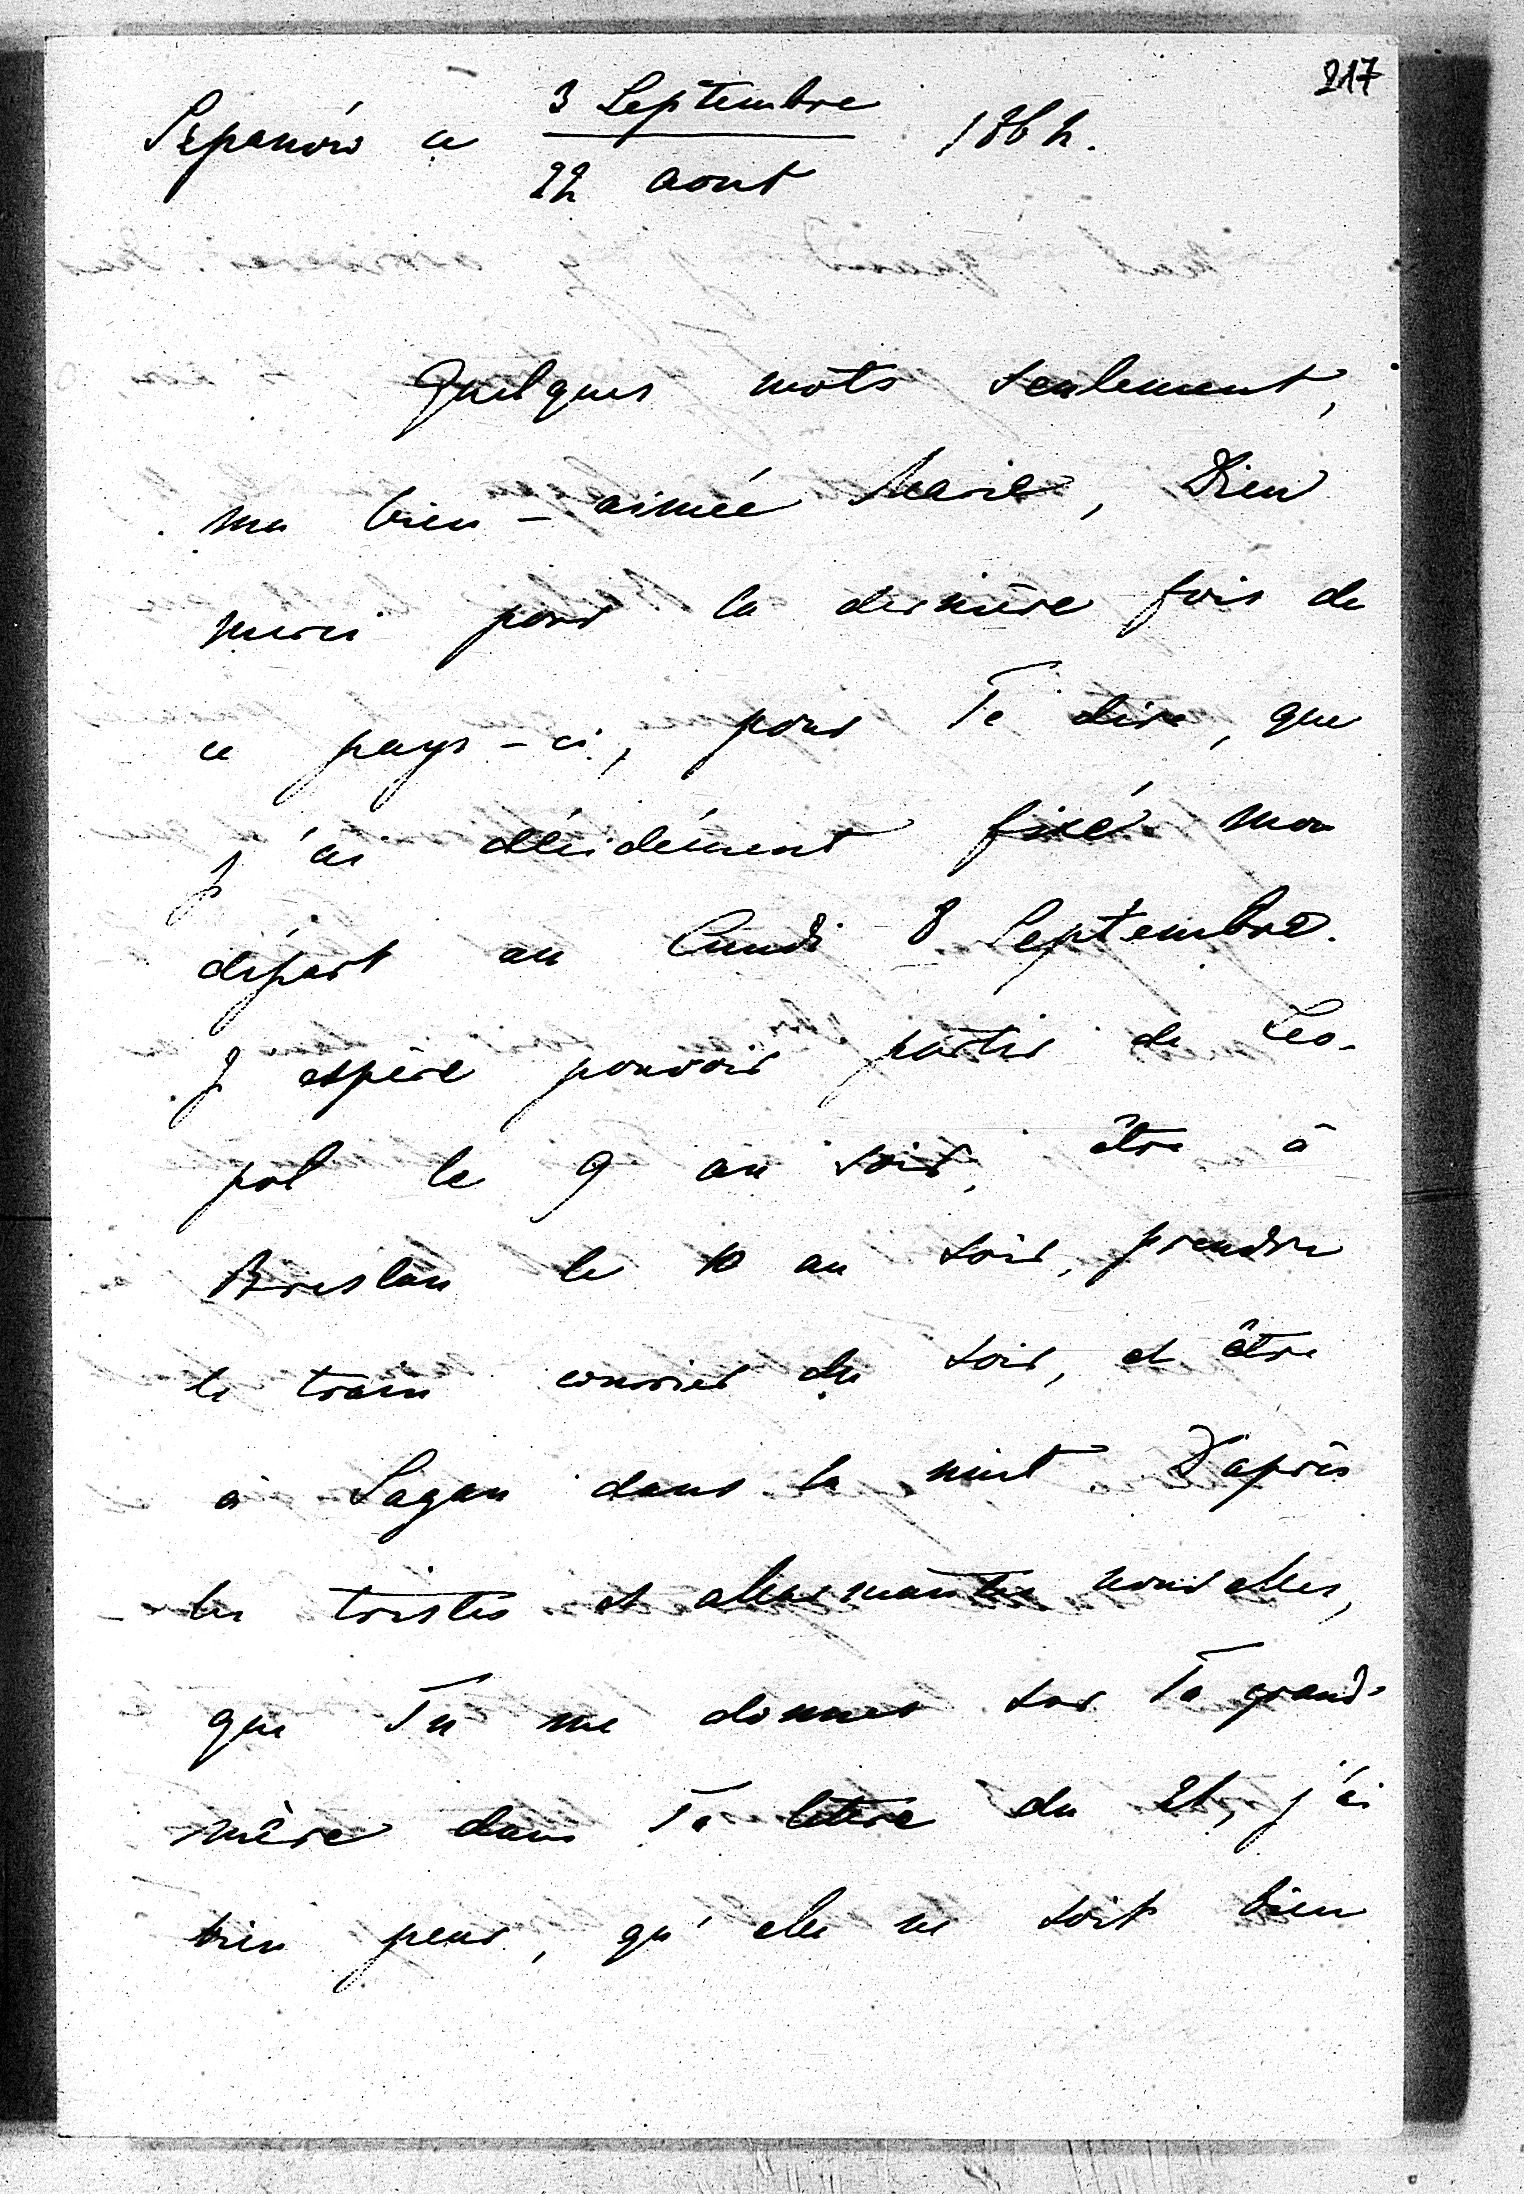 217
Szpanów ce 3 Septembre 1862.
22 aout
Quelques mots seulement,
ma bien-aimée Marie, Dieu
merci pour la dernière fois de
ce pays-ci, pour Te dire, que
j'ai décidément fixé mon
départ au Lundi 8 Septembre.
J'espère pouvoir partir de Léo-
pol le 9 au soir, être à
Breslau le 10 au soir, prendre
le train courrier du soir, et être
à Sagan dans la nuit. D'après
les tristes et allarmantes nouvelles,
que Tu me donnes sur Ta grand-
mère dans Ta lettre du 26, j'ai
bien peur, qu'elle ne soit bien